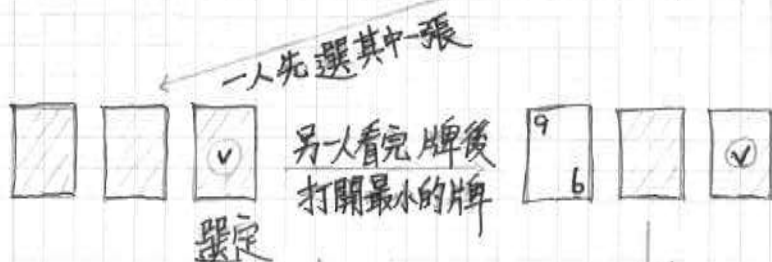 一人先選其中一張
v
選定
另一人看完牌後
打開最小的牌
9
6
v